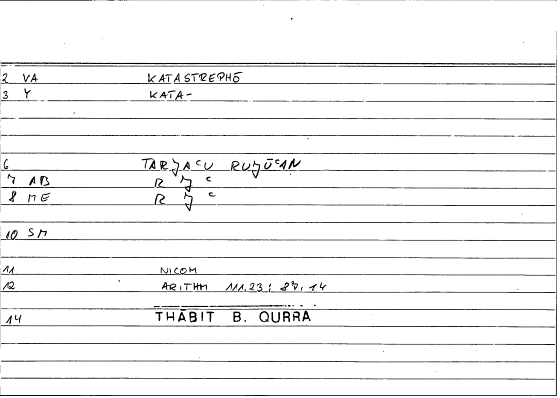 2 VA KATASTREPHŌ
3 Y KATA-
6 TARJAᶜU RUJŪᶜAN
7 AB R J ᶜ
8 ME R J ᶜ
10 SM
11 NICOM
12 ARITHM 111.23; 87,14
14 THĀBIT B. QURRA